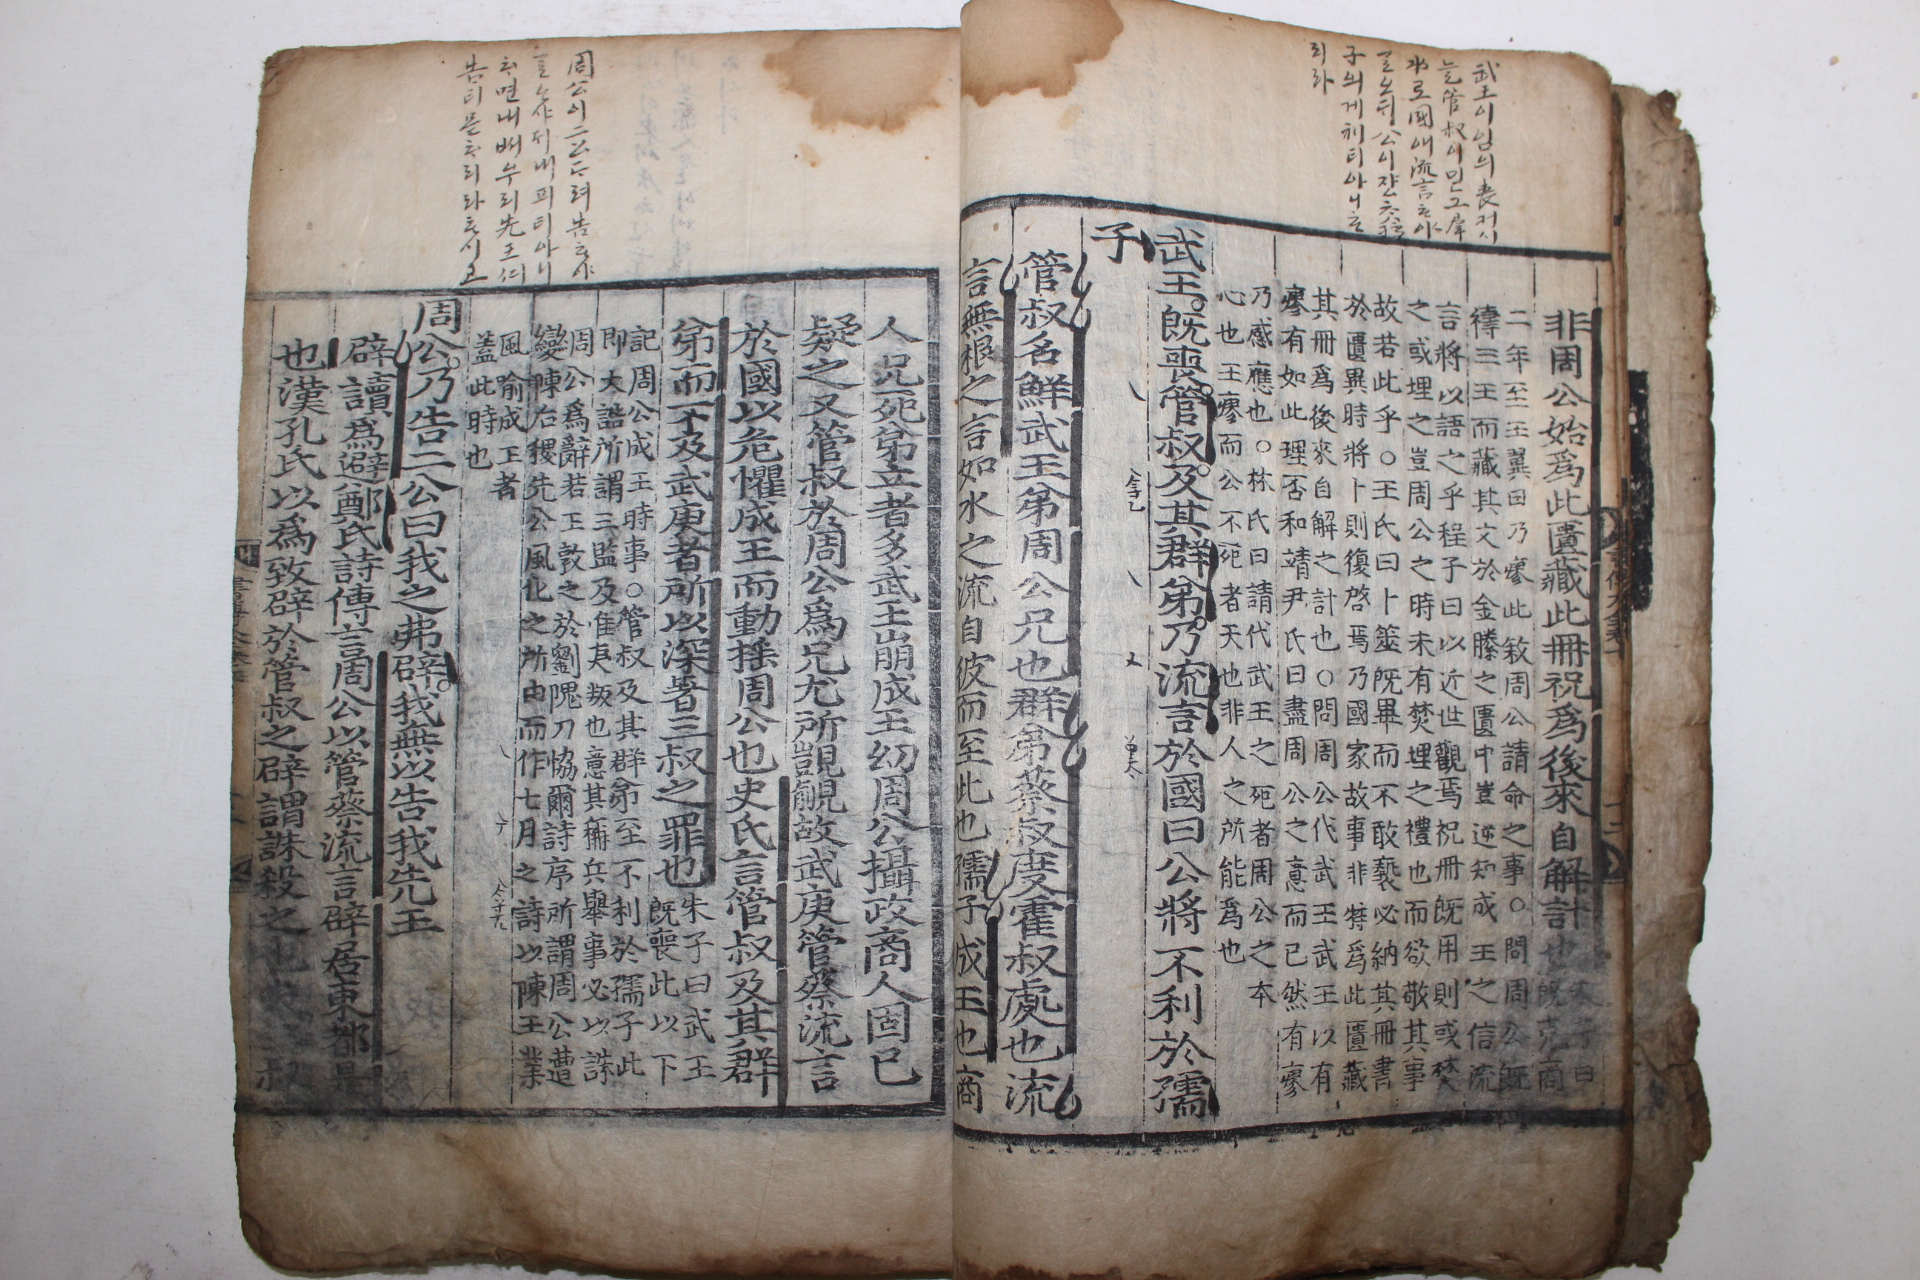 武王이 임의 喪커시
늘 管叔이 믿 그 羣
弟로 國애 流言하야
골오듸 公이 쟝찻 孺
子의게 利티 아니하
리라
非周公始爲此匱藏此冊祝爲後來自解計也
二年至王翼日乃瘳此敘周公請命之事○問周公旣
禱三王而藏其文於金縢之匱中豈逆知成王之信流
言將以語之乎程子曰以近世觀焉祝冊旣用則或焚
之或埋之豈周公之時未有焚埋之禮也而欲敬其事
故若此乎○王氏曰卜筮旣畢而不敢褻必納其冊書
於匱異時將卜則復啓焉乃國家故事非特爲此匱藏
其冊爲後來自解之計也○問周公代武王武王以有
瘳有如此理否和靖尹氏曰盡周公之意而已然有瘳
乃感應也○林氏曰請代武王之死者周公之本
心也王瘳而公不死者天也非人之所能爲也
武王旣喪管叔及其群弟乃流言於國曰公將不利於孺
子
管叔名鮮武王弟周公兄也群弟蔡叔度霍叔處也流
言無根之言如水之流自彼而至此也孺子成王也商
周公이 二公드려 告하야
내 피티 아니
하면 내 배 우리 先王씌
告티 몯하리라 하시고
人兄死弟立者多武王崩成王幼周公攝政商人固已
疑之又管叔於周公爲兄尤所覬覦故武庚管蔡流言
於國以危懼成王而動搖周公也史氏言管叔及其群
弟而不及武庚者所以深著三叔之罪也
朱子曰武王
旣喪此以下
記周公成王時事○管叔及其群弟至不利於孺子此
即大誥所謂三監及淮夷叛也意其稱兵擧事必以誅
周公爲辭若王敦之於劉隗刁協爾詩序所謂周公遭
變陳后稷先公風化之所由而作七月之詩以陳王業
風喩成王者
蓋此時也
周公乃告二公曰我之弗辟我無以告我先王
辟讀爲避鄭氏詩傳言周公以管蔡流言辟居東都是
也漢孔氏以爲致辟於管叔之辟謂誅殺之也